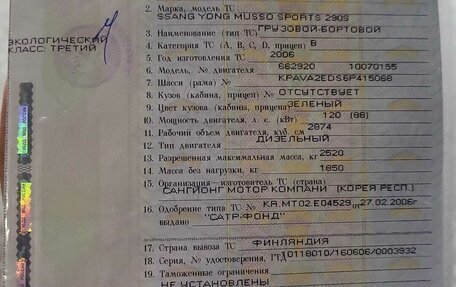 ЭКОЛОГИЧЕСКИЙ
КЛАСС: ТРЕТИЙ
2. Марка, модель ТС
SSANG YONG MUSSO SPORTS 290S
3. Наименование (тип ТС) ГРУЗОВОЙ-БОРТОВОЙ
4. Категория ТС (А, В, С, D, прицеп) В
5. Год изготовления ТС 2006
6. Модель, № двигателя 662920 10070155
7. Шасси (рама) № KPAVA2EDS6P415068
8. Кузов (кабина, прицеп) № ОТСУТСТВУЕТ
9. Цвет кузова (кабины, прицепа) ЗЕЛЕНЫЙ
10. Мощность двигателя, л. с. (кВт) 120 (88)
11. Рабочий объем двигателя, куб. см 2874
12. Тип двигателя ДИЗЕЛЬНЫЙ
13. Разрешенная максимальная масса, кг 2520
14. Масса без нагрузки, кг 1850
15. Организация – изготовитель ТС (страна)
САНГИОНГ МОТОР КОМПАНИ (КОРЕЯ РЕСП.)
16. Одобрение типа ТС № KR.MT02.E04529 от 27.02.2006г
выдано "САТР-ФОНД"
17. Страна вывоза ТС ФИНЛЯНДИЯ
18. Серия, № удостоверения, ГТД 10118010/160606/0003932
19. Таможенные ограничения
НЕ УСТАНОВЛЕНЫ